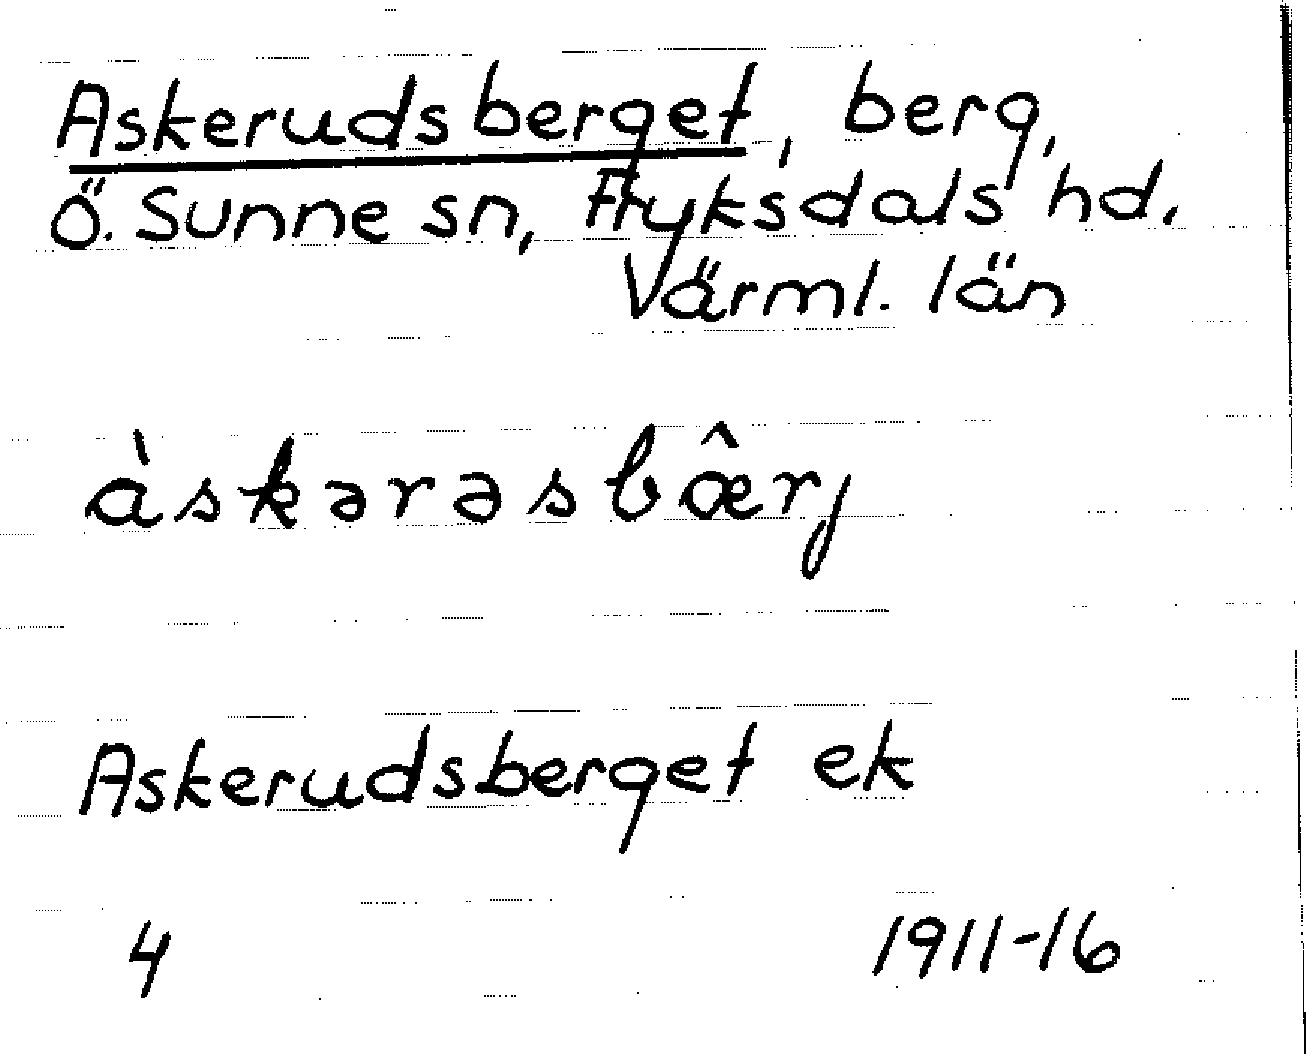 Askerudsberget, berg,
Ö. Sunne sn, Fryksdals hd.
Värml. län
àskərəsbæ̂rj
Askerudsberget ek
4 1911-16